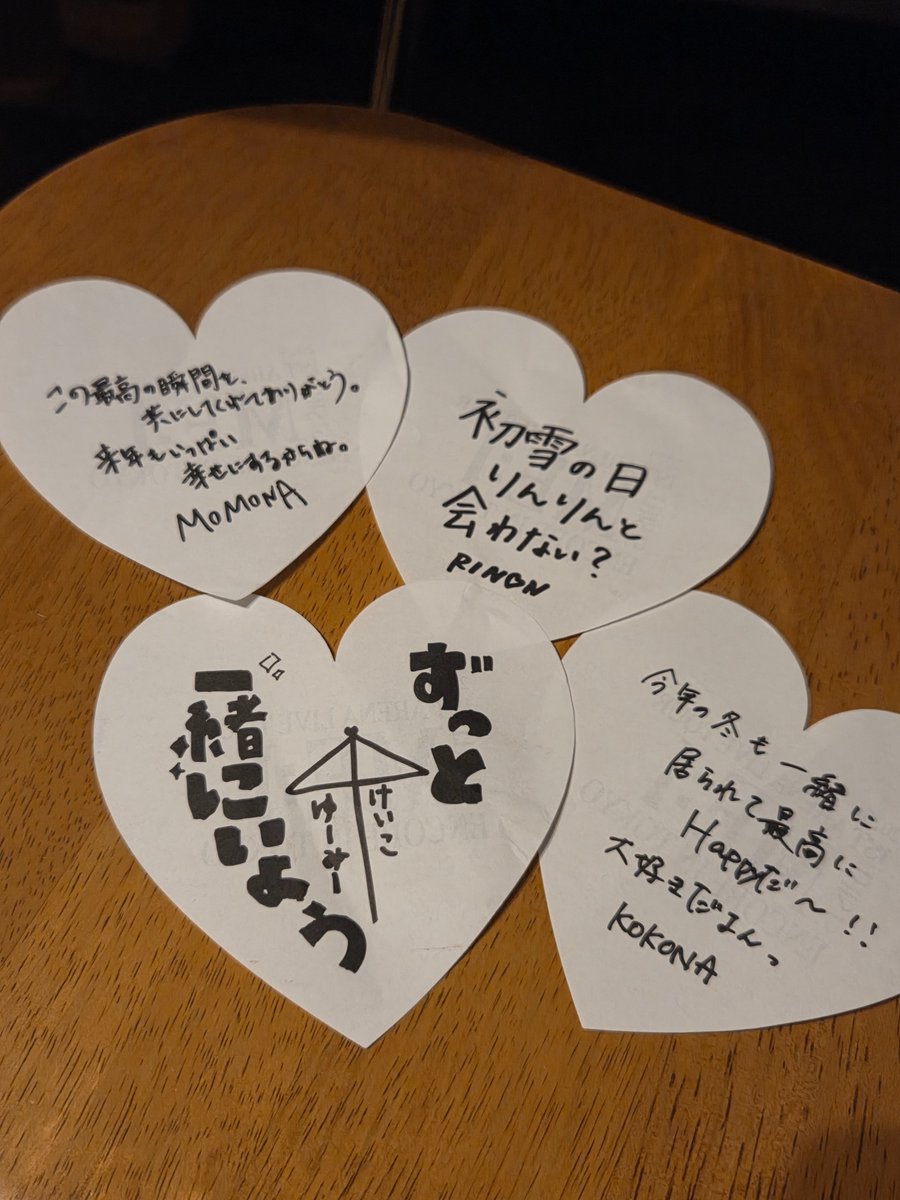 この最高の瞬間を、
共にしてくれてありがとう。
来年もいっぱい
幸せにするからね。
MOMONA
初雪の日
りんりんと
会わない?
RINON
ずっと
一緒にいよう
けいこ
ゆーすー
今年の冬も一緒に
居られて最高に
Happyだ〜!!
大好きだもんっ
KOKONA
ARENA LIVE